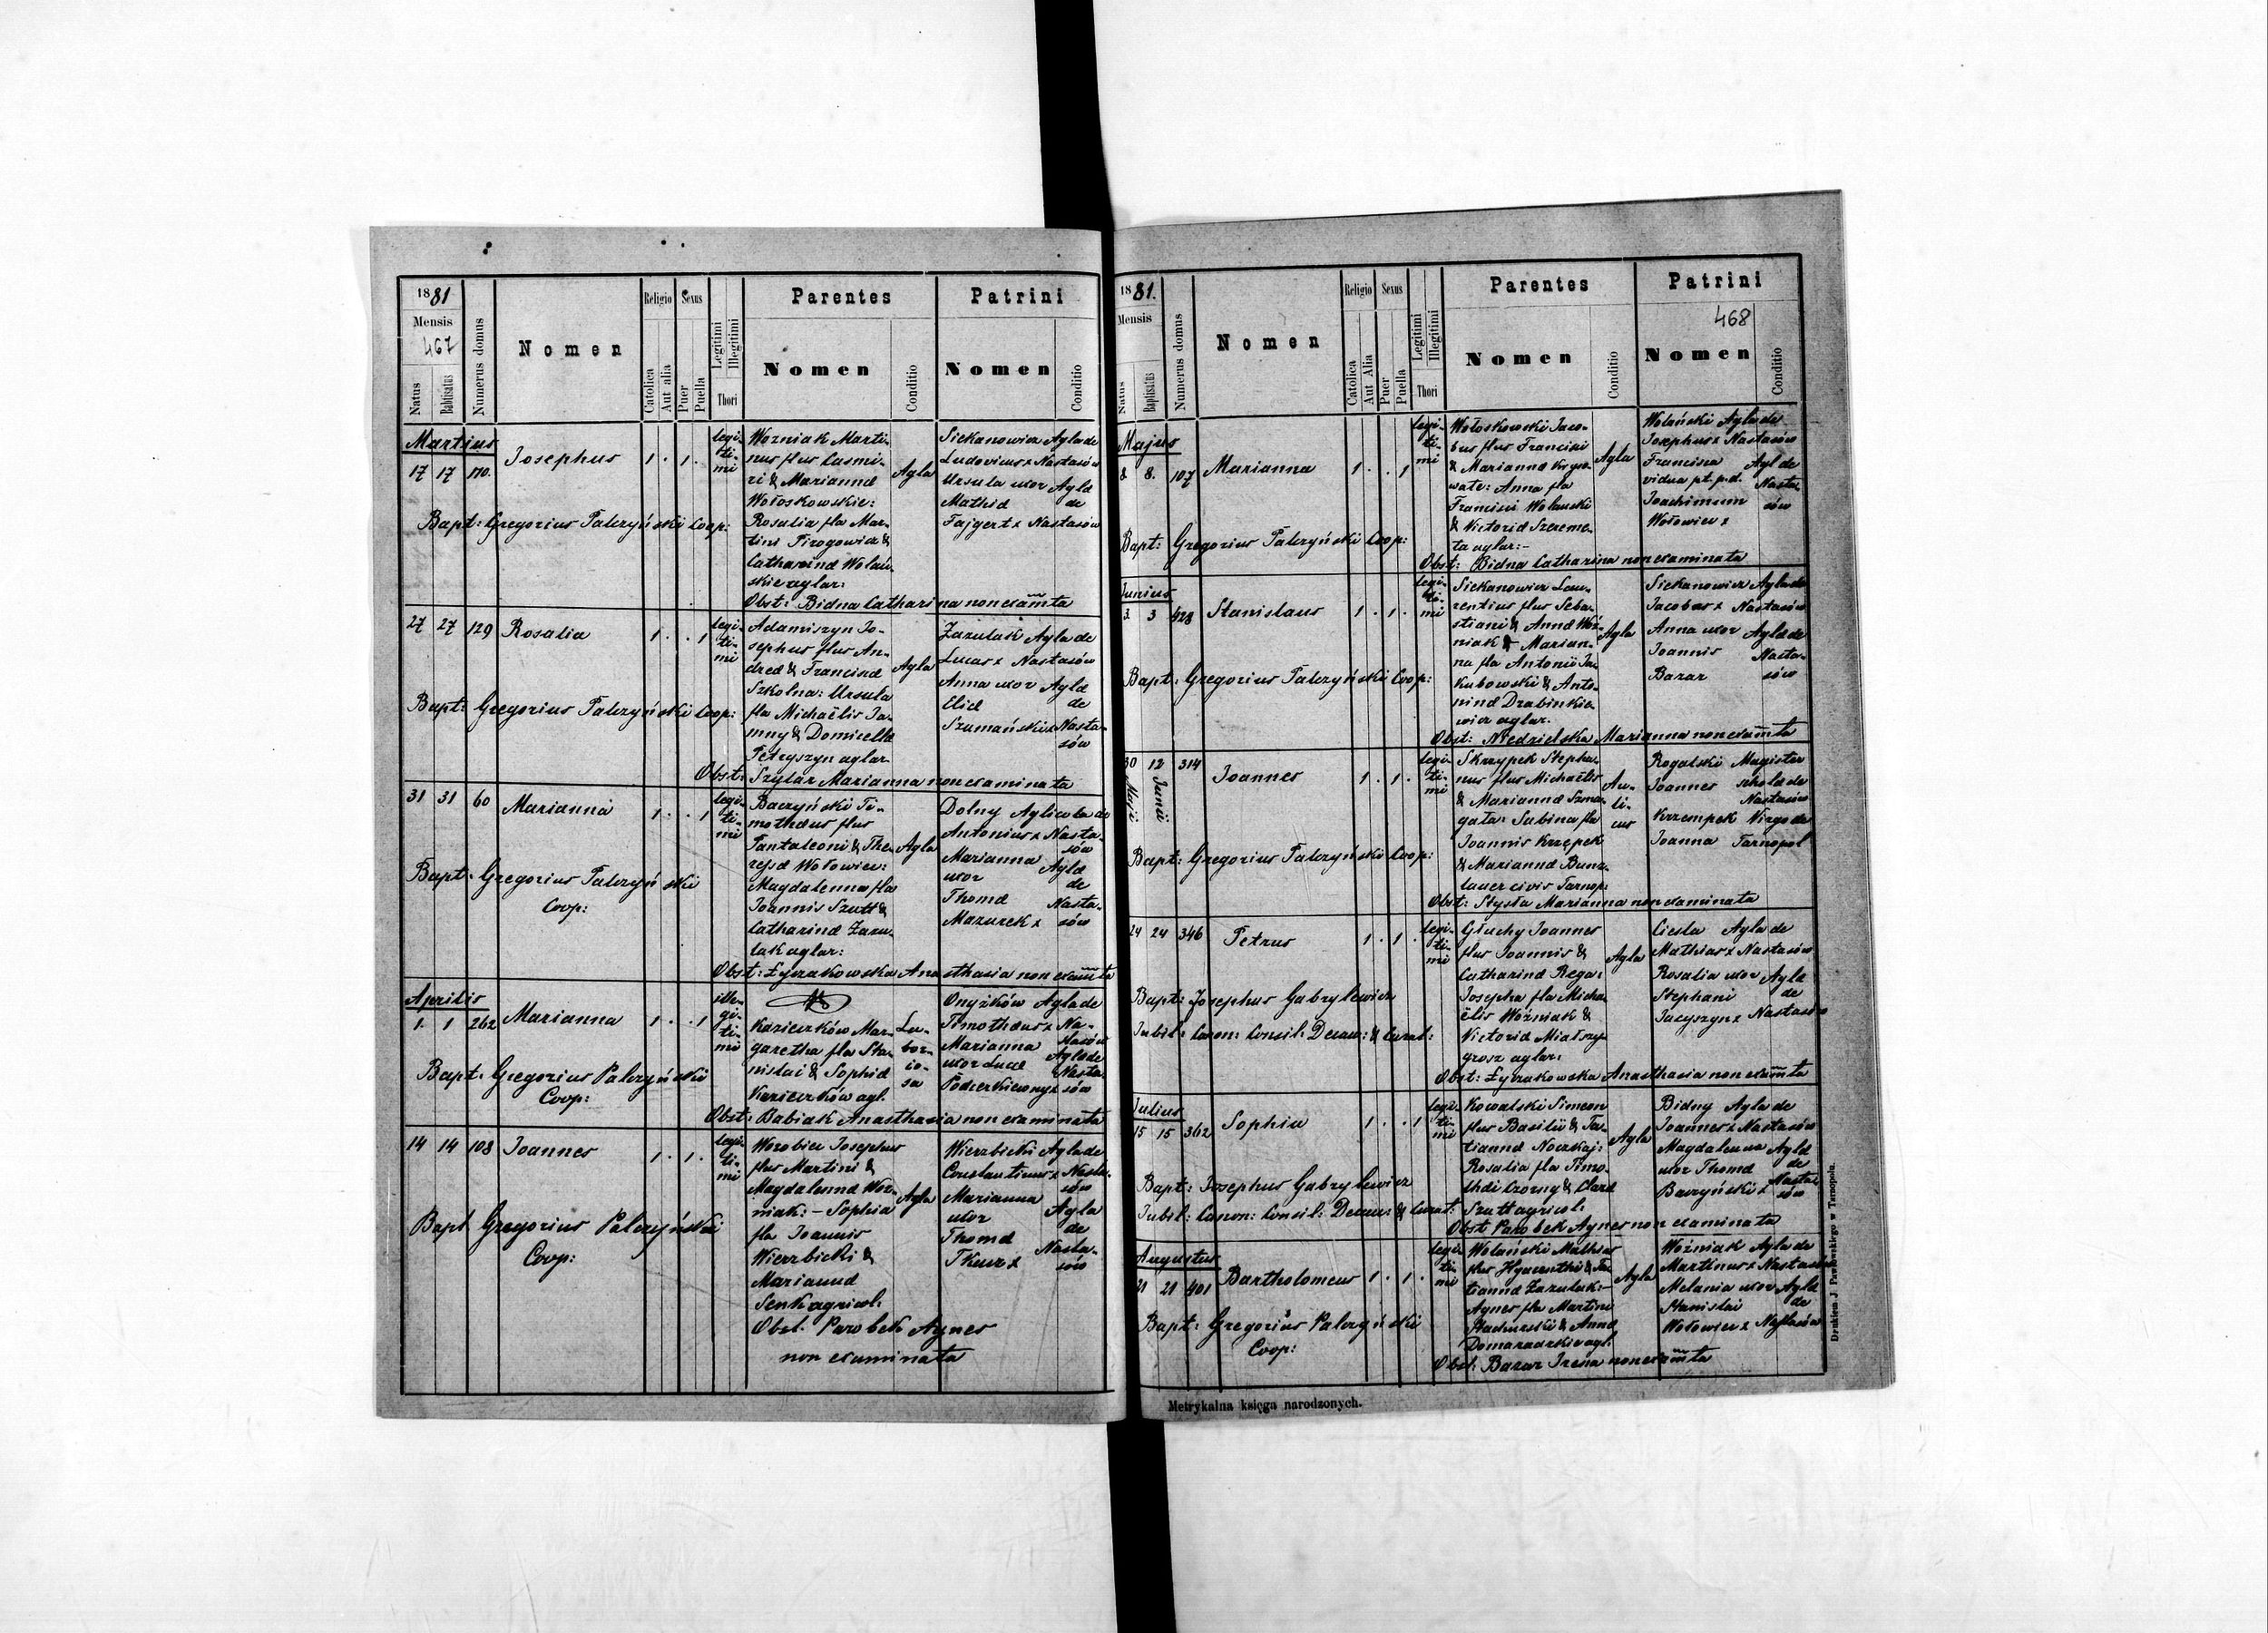 1881
Mensis
467
Natus
Babtisatus
Numerus domus
Nomen
Religio
Catolica
Aut alia
Sexus
Puer
Puella
Legitimi
Illegitimi
Thori
Parentes
Nomen
Conditio
Patrini
Nomen
Conditio
Martius
17 17 170. Josephus 1. 1.
legi-
ti-
mi
Wozniak Marti-
nus flus Casmi-
ri & Mariannæ
Wołoskowskie:
Rosalia fla Mar-
tini Pirogowicz &
Catharinæ Wolań-
skie aglar:
Agla
Siekanowicz Agla de
Ludovicus x Nastasów
Ursula uxor Aglæ
Mathiæ de
Fajgert x Nastasów
Bapt: Gregorius Palczyński Coop:
Obst: Bidna Catharina non examta
27 27 129 Rosalia 1. . 1
legi-
ti-
mi
Adamiszyn Jo-
sephus flus An-
dreæ & Franciscæ
Szkolna: Ursula
fla Michaëlis Ja-
mny & Domicella
Peteyszyn aglar
Agla
Zazulak Agla de
Lucas x Nastasów
Anna uxor Aglæ
Eliæ de
Szumański x Nasta-
sów
Bapt: Gregorius Palczyński Coop:
Obst: Szylar Marianna non examinata
31 31 60 Marianna 1. . 1
legi-
ti-
mi
Baczyński Ti-
motheus flus
Pantaleoni & The-
resiæ Wołowiec:
Magdalenna fla
Joannis Szutt &
Catharinæ Zazu-
lak aglar:
Agla
Dolny Aglicola de
Antonius x Nasta-
sów
Marianna Aglæ
uxor de
Thomæ Nasta-
Mazurek x sów
Bapt: Gregorius Palczyński
Coop:
Obst: Łyczakowska Anasthasia non examta
Aprilis
1. 1 262 Marianna 1. . 1
ille-
gi-
ti-
mi
Kaziczków Mar-
garetha fla Sta-
nislai & Sophiæ
Kaziczków agl.
La-
bor-
io-
sa
Onyżków Agla de
Timotheus x Na-
stasów
Marianna Agla de
uxor Lucæ Nasta-
Podzerkiewny x sów
Bapt: Gregorius Palczyński
Coop:
Obst: Babiak Anasthasia non examinata
14 14 108 Joannes 1. 1.
legi-
ti-
mi
Worobiec Josephus
flus Martini &
Magdalennæ Woz-
niak: - Sophia
fla Joannis
Wierzbicki &
Mariannæ
Senk agricol:
Agla
Wierzbicki Agla de
Constantinus x Nasta-
sów
Marianna Agla
uxor de
Thomæ Nasta-
Tkacz x sów
Bapt Gregorius Palczyński
Coop:
Obst. Parobek Agnes
non examinata
1881.
Mensis
468
Natus
Baptisatus
Numerus domus
Nomen
Religio
Catolica
Aut Alia
Sexus
Puer
Puella
Legitimi
Illegitimi
Thori
Parentes
Nomen
Conditio
Patrini
Nomen
Conditio
Majus
8 8. 107 Marianna 1. . 1
legi-
ti-
mi
Wołoskowski Jaco-
bus flus Francisci
& Mariannæ Krywo-
wate: Anna fla
Francisci Wolanski
& Victoriæ Szereme-
ta aglar:-
Agla
Wolański Agla de
Josephus x Nastasów
Francisca Agl de
vidua pt. p.d. Nasta-
Joachimum sów
Wołowiec x
Bapt: Gregorius Palczyński Coop:
Obst: Bidna Catharina non examinata
Junius
3. 3 428 Stanislaus 1. 1.
legi-
ti-
mi
Siekanowicz Lau-
rentius flus Seba-
stiani & Annæ Woź-
niak & Marian-
na fla Antonii Ja-
kubowski & Anto-
ninæ Drabinkie-
wicz aglar.
Agla
Siekanowicz Agla de
Jacobus x Nastasów
Anna uxor Aglæ de
Joannis Nasta-
Bazar sów
Bapt: Gregorius Palczyński Coop:
Obst: Niedzielska Marianna non examta
30 Maji 12 Junii 314 Joannes 1. 1.
legi-
ti-
mi
Skrzypek Stepha-
nus flus Michaëlis
& Mariannæ Szma-
gała: Sabina fla
Joannis Krzępek
& Mariannæ Bunz-
lauer civis Tarnop:
Au-
li-
cus
Rogalski Magister
Joannes scholæ de
Nastasów
Krzempek Virgo de
Joanna Tarnopol
Bapt: Gregorius Palczyński Coop:
Obst: Stysła Marianna non examinata
24 24 346 Petrus 1. 1.
legi-
ti-
mi
Głuchy Joannes
flus Joannis &
Catharinæ Rega:
Josepha fla Micha-
ëlis Woźniak &
Victoriæ Miałszy-
grosz aglar:
Agla
Ciesla Agla de
Mathias x Nastasów
Rosalia uxor Aglæ
Stephani de
Jacyszyn x Nastasów
Bapt: Josephus Gabrylewicz
Jubil: Canon: Consil: Decan: & Curat:
Obst: Łyczakowska Anasthasia non examta
Julius
15 15 362 Sophia 1. . 1
legi-
ti-
mi
Kowalski Simeon
flus Basilii & Ta-
tiannæ Noczkaj:
Rosalia fla Timo-
thei Czorny & Claræ
Szutt agricol:
Agla
Bidny Agla de
Joannes x Nastasów
Magdalenna Aglæ
uxor Thomæ de
Baczyński x Nasta-
sów
Bapt: Josephus Gabrylewicz
Jubil: Canon: Consil: Decan: & Curat:
Obst Parobek Agnes non examinata
Augustus
21 21 401 Bartholomeus 1. 1.
legi-
ti-
mi
Wolański Mathias
flus Hyacinthi & Ta-
tiannæ Zazulak:-
Agnes fla Martini
Stadnirski & Annæ
Domaradzkie agl.
Agla
Woźniak Agla de
Martinus x Nastasów
Melania uxor Aglæ
Stanislai de
Wołowiec x Nastasów
Bapt: Gregorius Palczyński
Coop:
Obst: Bazar Irena non examta
Metrykalna księga narodzonych.
Drukiem J. Pawłowskiego w Tarnopolu.